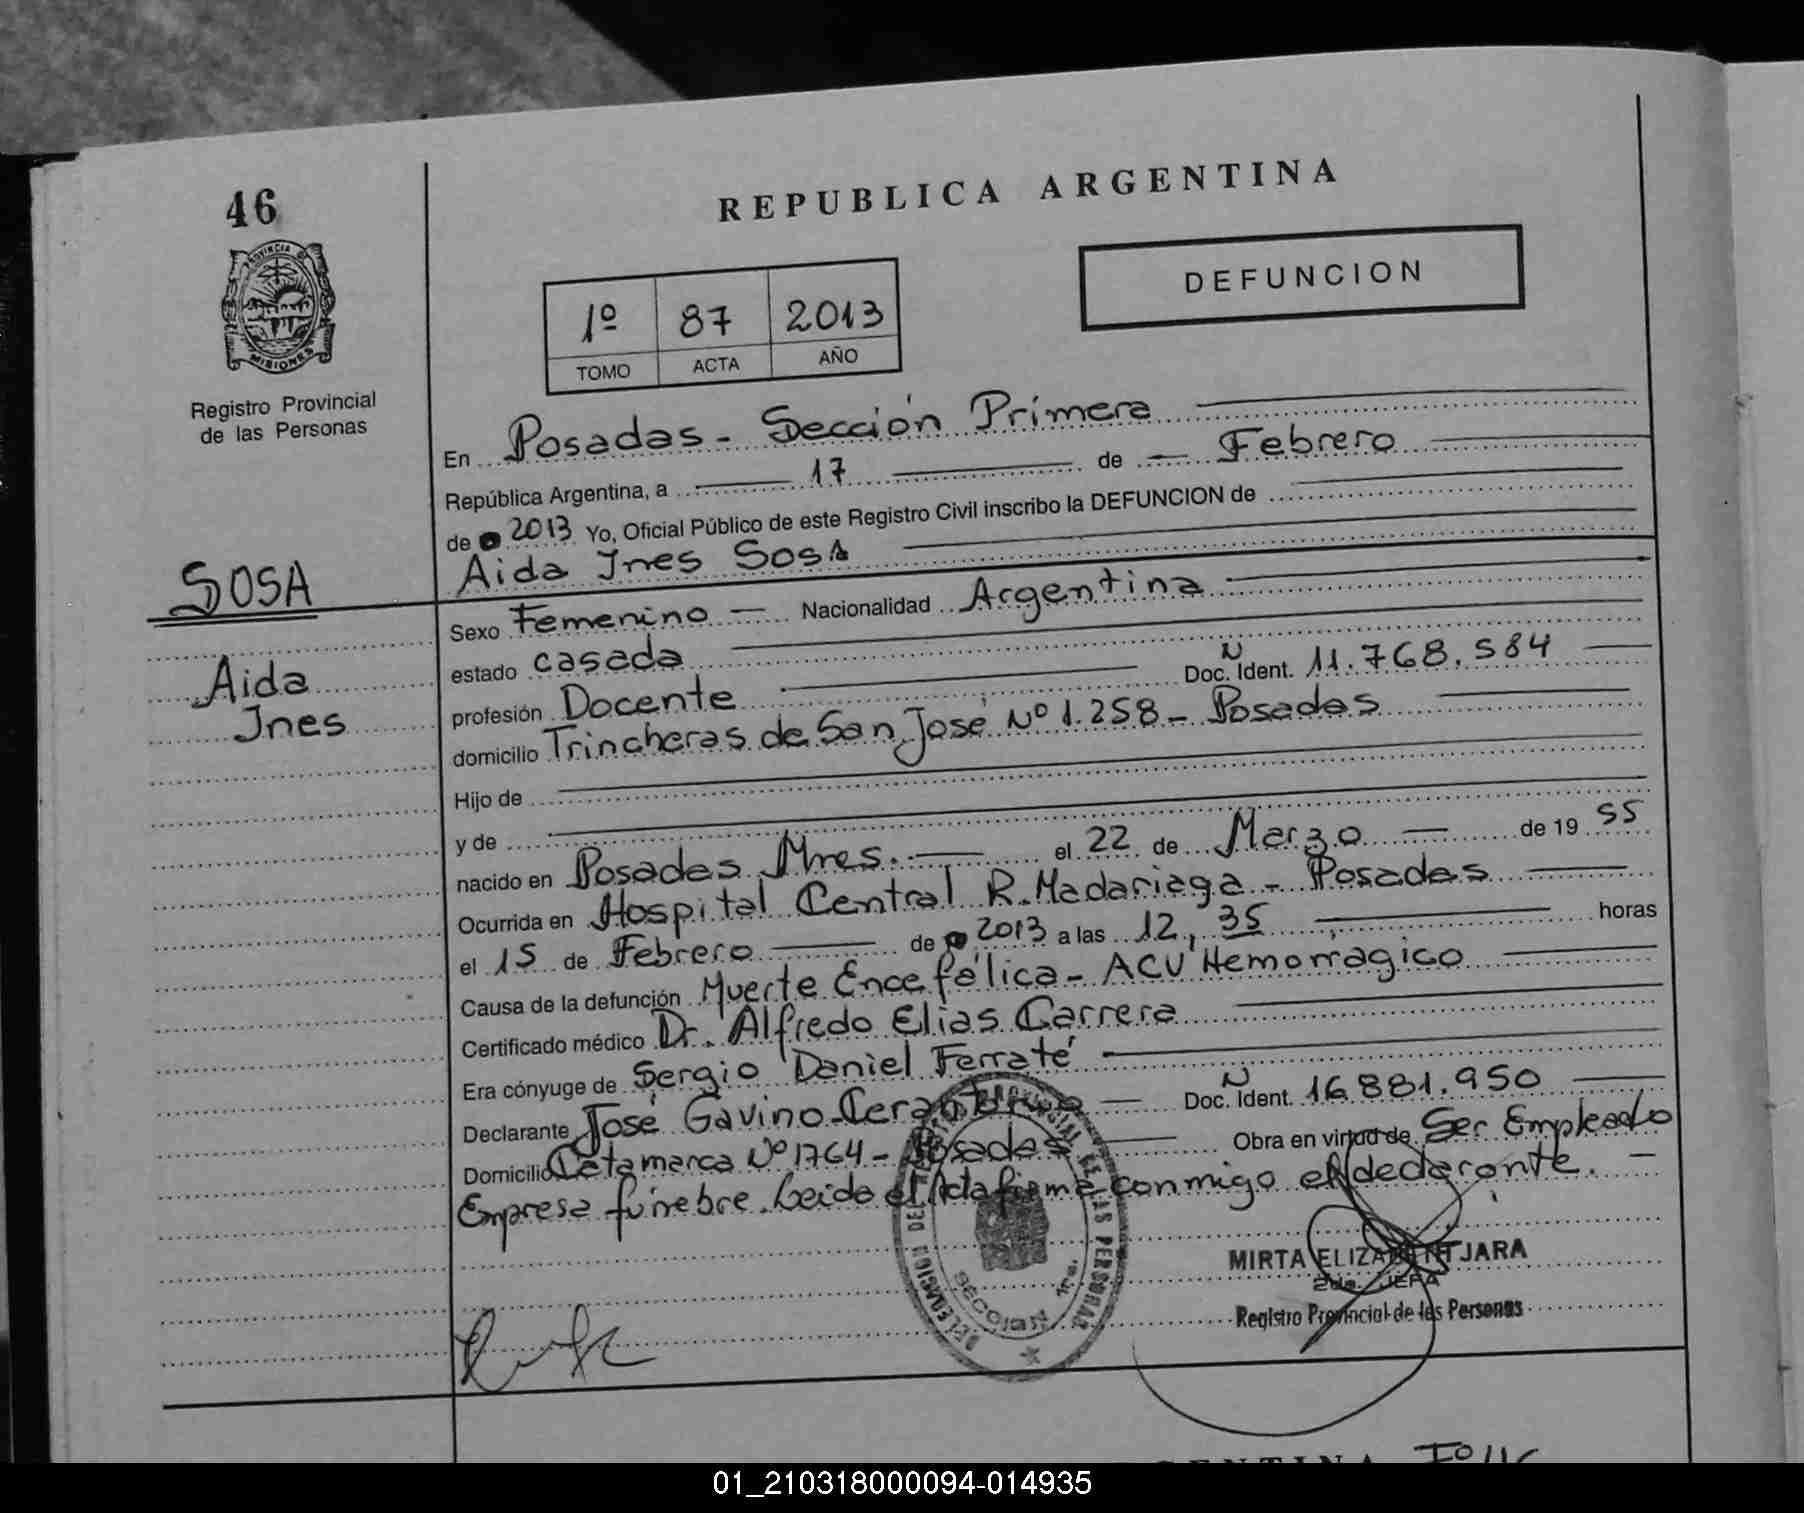 46
REPUBLICA ARGENTINA
PROVINCIA DE
MISIONES
Registro Provincial
de las Personas
DEFUNCION
1º 87 2013
TOMO ACTA AÑO
En Posadas - Sección Primera
República Argentina, a 17 de Febrero
de 2013 Yo, Oficial Público de este Registro Civil inscribo la DEFUNCION de
Aida Ines Sosa
SOSA
Aida
Ines
Sexo Femenino - Nacionalidad Argentina
estado casada
profesión Docente Doc. N Ident. 11.768.584
domicilio Trincheras de San José Nº 1.258 - Posadas
Hijo de
y de
nacido en Posadas Mnes. el 22 de Marzo de 1955
Ocurrida en Hospital Central R. Madariaga - Posadas
el 15 de Febrero de 2013 a las 12,35 horas
Causa de la defunción Muerte Encefálica - ACV Hemorragico
Certificado médico Dr. Alfredo Elias Carrera
Era cónyuge de Sergio Daniel Ferraté
Declarante José Gavino Doc. N Ident. 16.881.950
Domicilio Catamarca Nº 1764 - Posadas Obra en virtud de Ser Empleado
Empresa fúnebre. Leida el Acta firma conmigo el declarante.
DE LAS PERSONAS
SECCION 1ra.
MIRTA ELIZABETH JARA
2da. JEFA
Registro Provincial de las Personas
01_210318000094-014935